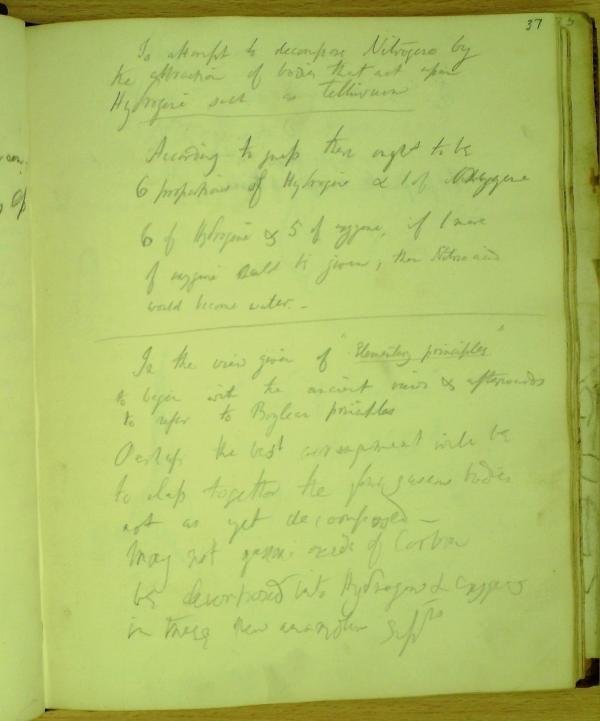 37
To attempt to decompose Nitrogene by
the attraction of bodies that act upon
Hydrogene such as Tellurium
According to  there ought to be
6 proportions of Hydrogene & 1 of Oxygene
6 of Hydrogene & 5 of oxygene, if 1 more
of oxygene could be given, then Nitrous acid
would become water. –
In the view given of "Elementary principles"
to begin with the ancient views & afterwards
to refer to Boylean principles
Perhaps the best arrangement will be
to class together the four gaseous bodies
not as yet decomposed –
May not gaseous oxide of Carbon
be decomposed into Hydrogene & oxygene
in these new